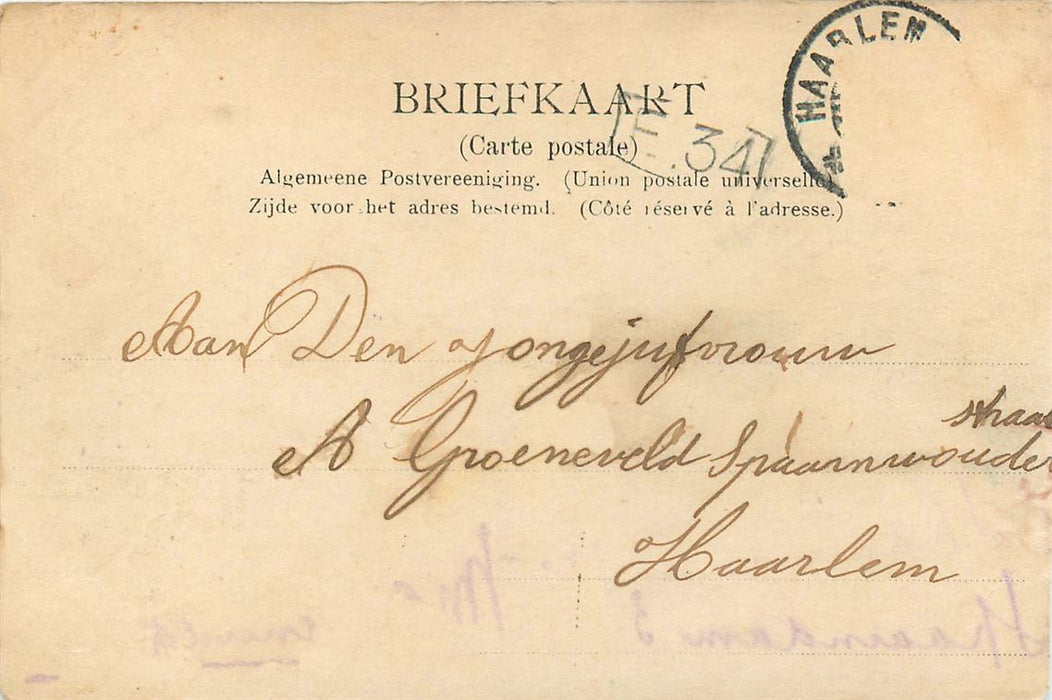 HAARLEM
BRIEFKAART
34
(Carte postale)
Algemeene Postvereeniging. (Union postale universelle)
Zijde voor het adres bestemd. (Côté réservé à l'adresse.)
Aan Den Jongejufvrouw
straat
A Groeneveld Spaarnwouder
Haarlem